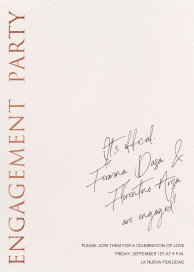 ENGAGEMENT PARTY
It's offical!
Fermina Daza &
Florentino Ariza
are engaged!
PLEASE JOIN THEM FOR A CELEBRATION OF LOVE
FRIDAY, SEPTEMBER 1ST AT 9 P.M.
LA NUEVA FIDELIDAD